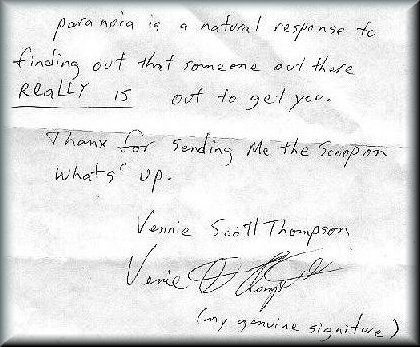 paranoia is a natural response to
finding out that someone out there
REALLY IS out to get you.
Thanx for sending Me the Scoop on
whats' up.
Vennie Scott Thompson
(my genuine signiture)